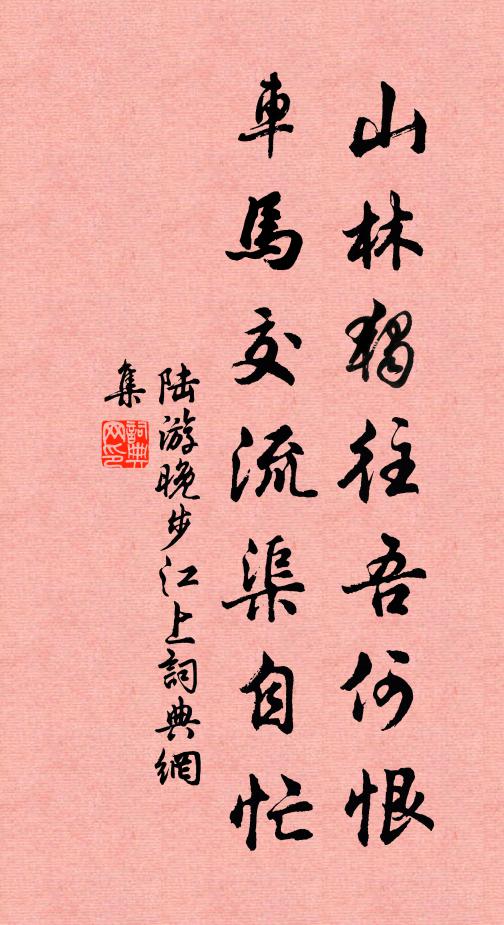 山林獨往吾何恨
車馬交流渠自忙
陸游晚步江上詞典網
集
詞典
网印